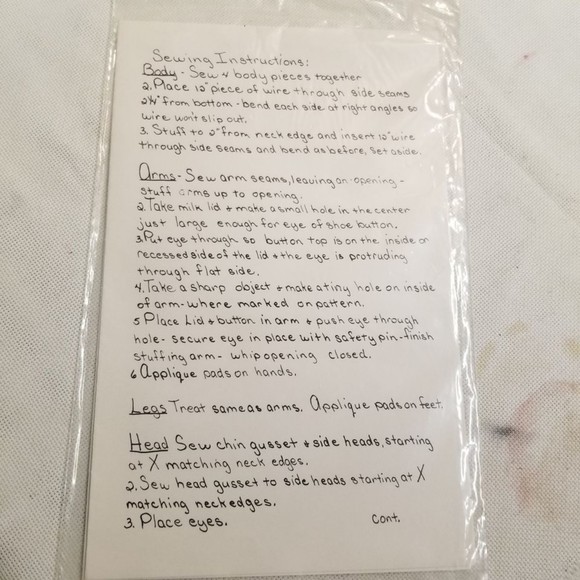 Sewing Instructions:
Body - Sew 4 body pieces together
2. Place 12" piece of wire through side seams
2½" from bottom - bend each side at right angles so
wire won't slip out.
3. Stuff to 2" from neck edge and insert 12" wire
through side seams and bend as before, set aside.
Arms - Sew arm seams, leaving an opening -
stuff arms up to opening.
2. Take milk lid + make a small hole in the center
just large enough for eye of shoe button.
3. Put eye through so button top is on the inside or
recessed side of the lid + the eye is protruding
through flat side.
4. Take a sharp object + make a tiny hole on inside
of arm - where marked on pattern.
5 Place Lid + button in arm + push eye through
hole - secure eye in place with safety pin - finish
stuffing arm - whip opening closed.
6 Applique pads on hands.
Legs Treat same as arms. Applique pads on feet.
Head Sew chin gusset + side heads, starting
at X matching neck edges.
2. Sew head gusset to side heads starting at X
matching neck edges.
3. Place eyes.
Cont.